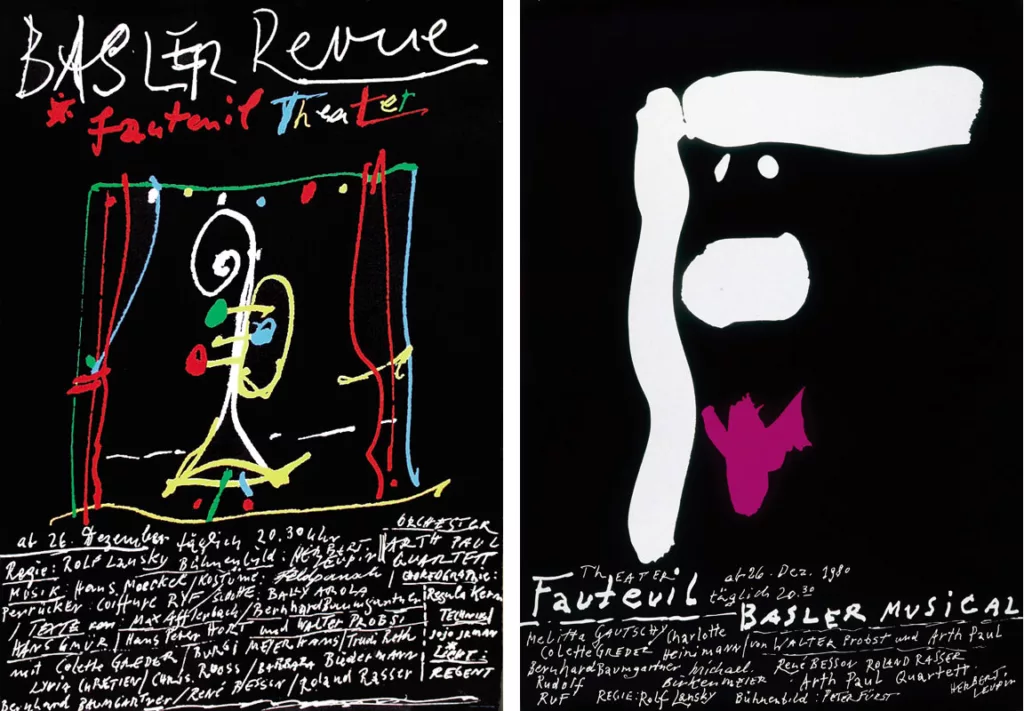 BASLER Revue
* Fauteuil Theater
ab 26. Dezember täglich 20.30 Uhr
Regie: Rolf Lansky Bühnenbild: HERBERT LEUPIN
MUSIK Hans Moeckel / KOSTÜME:
Perrücken: Coiffure RYF / SCHUHE: BALLY AROLA
/ TEXTE von / Max Afflenbach / Bernhard Baumgartner
HANS GMÜR / Hans Peter HORT und Walter PROBST
mit Colette GREDER / BURGI METERHANS / Trudi Roth
LYDIA CHRETIEN / CHRIS. RUOSS / BARBARA Büdermann
Bernhard BAUMGARTNER / RENÉ BESSON / Roland Rasser
ORCHESTER
ARTH PAUL
QUARTETT
CHOREOGRAPHIE:
Regula Kern
TECHNIK
LICHT:
REGENT
THEATER: ab 26. Dez. 1980
Fauteuil täglich 20.30
BASLER MUSICAL
Melitta GAUTSCHY Charlotte / von WALTER Probst und Arth Paul
Colette GREDER Heinimann
Bernhard Baumgartner Michael. René Besson ROLAND RASSER
Rudolf Birkenmeier Arth Paul Quartett
RUF REGIE: Rolf Lansky Bühnenbild: PETER FÜRST
HERBERT LEUPIN